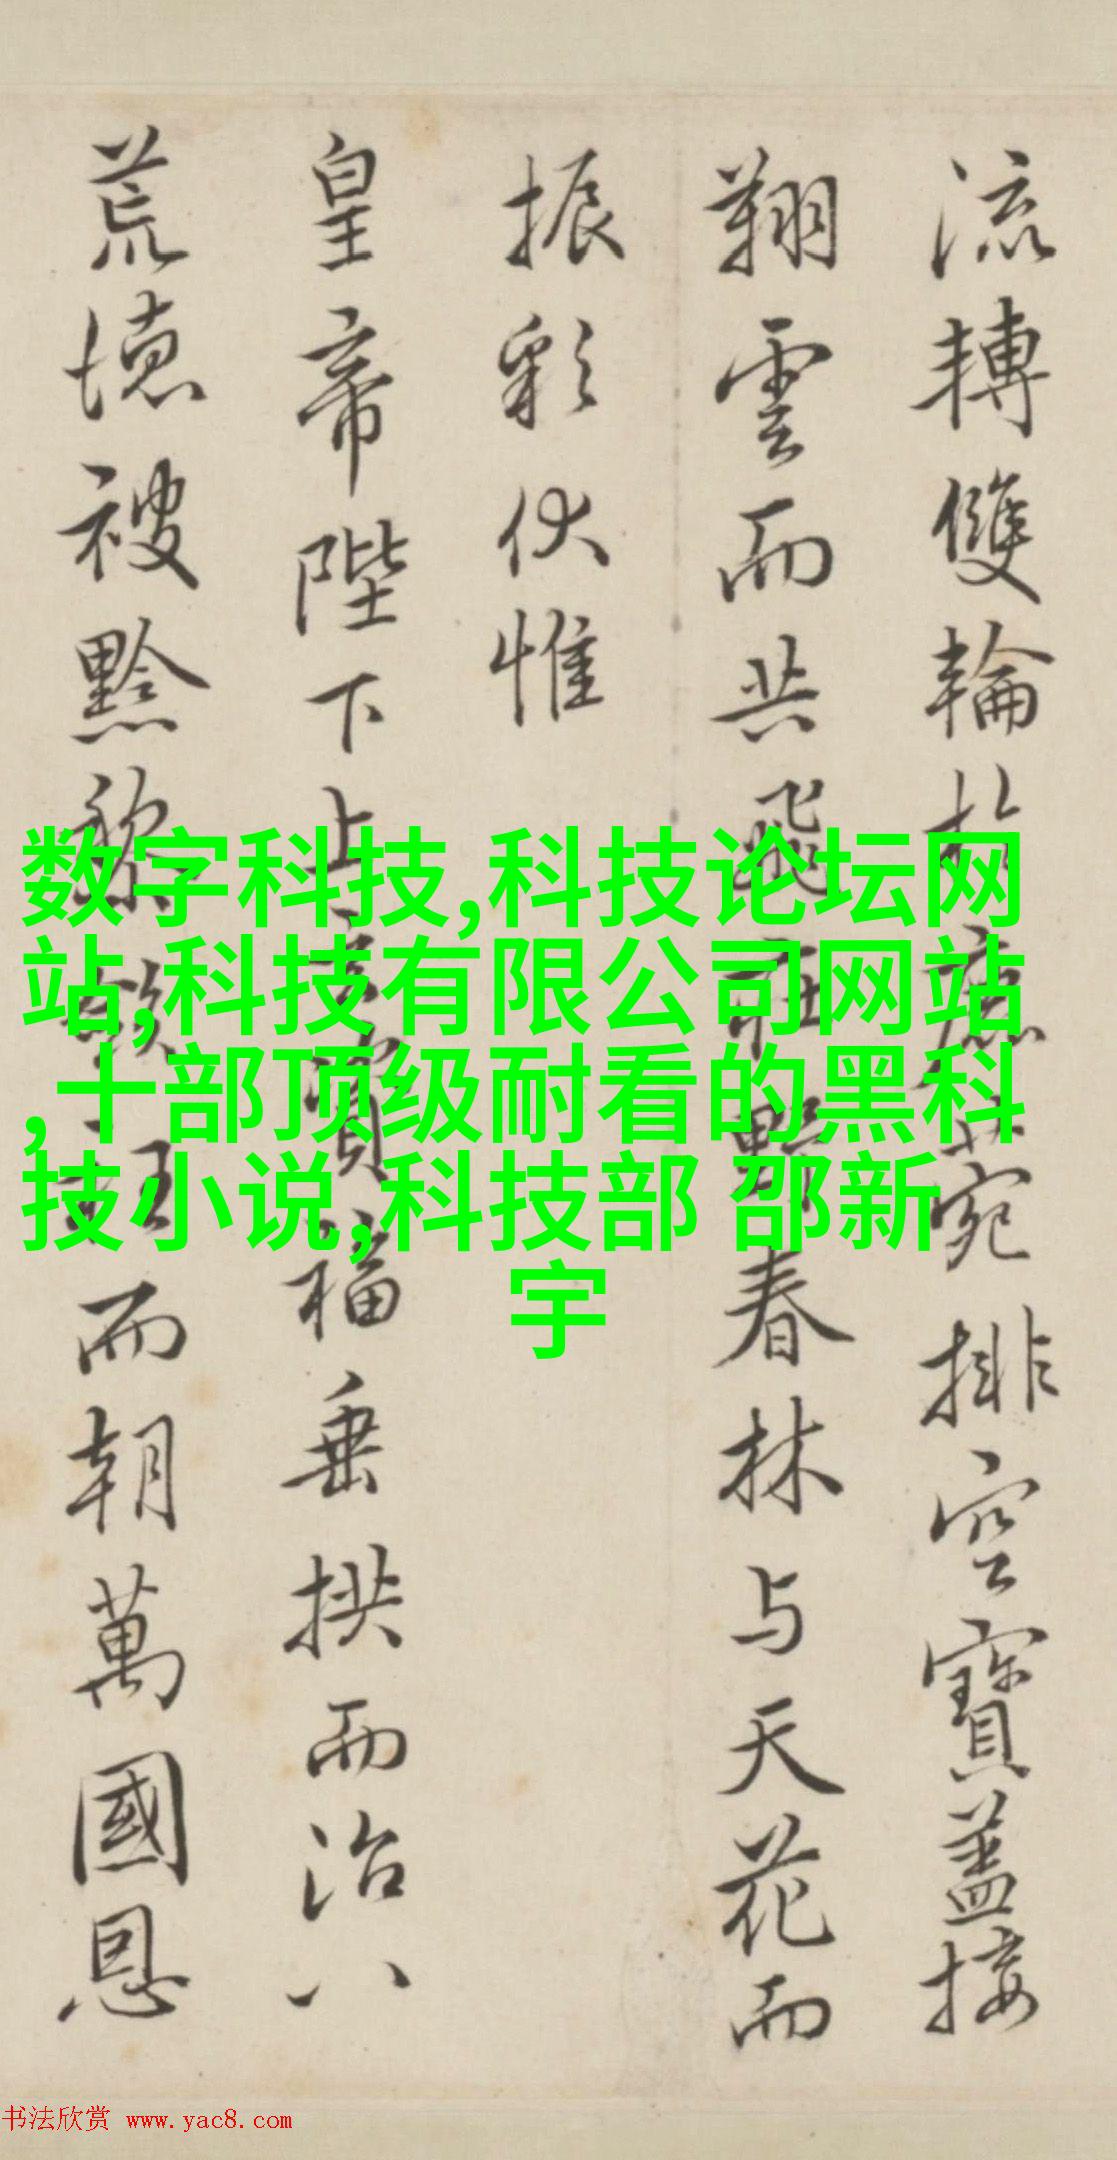 流轉雙輪於鹿苑排空寶蓋接
翔雲而共飛莊野春林与天花而
振彩伏惟
皇帝陛下上玄資福垂拱而治八
荒德被黔黎歛衽而朝萬國恩
数字科技,科技论坛网
站,科技有限公司网站
,十部顶级耐看的黑科
技小说,科技部 邵新
宇
书法欣赏 www.yac8.com